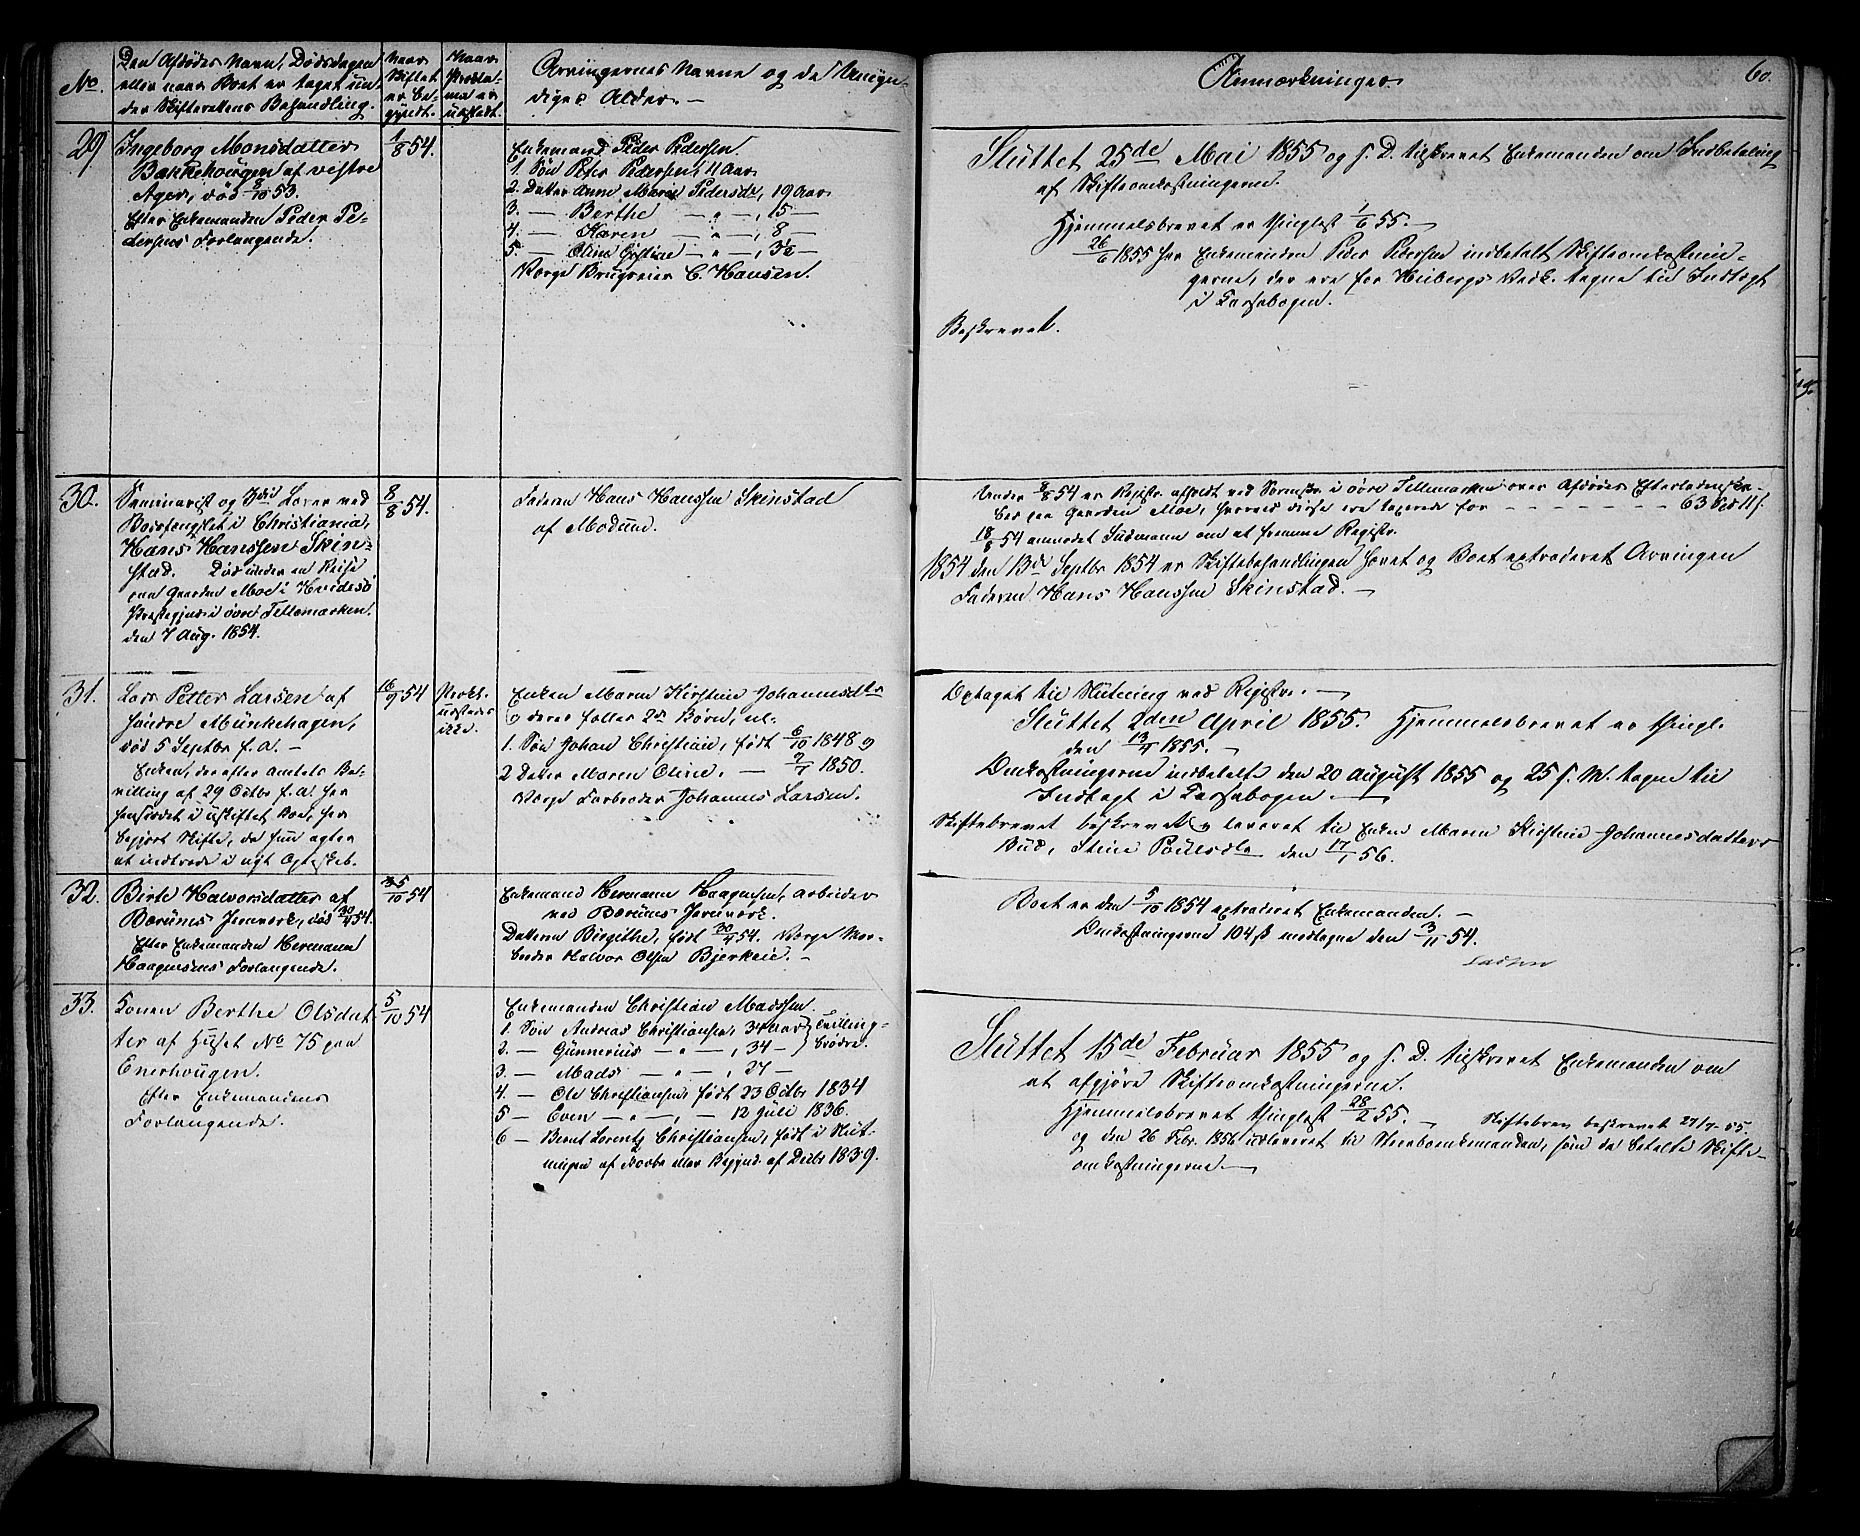 No.
Den Afdödes Navn, Dödsdagen
eller naar Boet er taget un-
der Skifterettens Behandling.
Naar
Skiftet
er be-
gyndt.
Naar
Prokla-
ma er
udstedt.
Arvingernes Navne og de Umyn-
diges Alder. —
Anmærkninger.
60.
29.
Ingeborg Monsdatter
Bakkehougen af vestre
Ager, död 5/10 53.
Efter Enkemanden Peder Pe-
dersens Forlangende.
1/8 54.
Enkemand Peder Pedersen.
1. Sön Peter Pedersen, 11 Aar
2. Datter Anne Marie Pedersdr, 19 Aar
3. — Berthe — „ —, 15 —
4. — Karen — „ —, 8 —
5. — Oline Cristine — „ —, 3½ —
Værge Brugseier C. Hansen.
Sluttet 25de Mai 1855 og s. D. tilskrevet Enkemanden om Indbetaling
af Skifteomkostningerne.
Hjemmelsbrevet er thinglæst 1/6 55. —
26/6 1855 har Enkemanden Peder Pedersen indbetalt Skifteomkostnin-
gerne, der ere for Heibergs Vedk. tagne til Indtægt
i Cassabogen.
Beskrevet.
30.
Seminarist og 3die Lærer ved
Bodsfængslet i Christiania,
Hans Hanssen Skin-
stad. Död under en Reise
paa Gaarden Moe i Hvidesö
Præstegjeld i övre Tellemarken
den 7 Aug. 1854.
8/8 54.
Faderen Hans Hanssen Skinstad
af Modum.
Under 8/8 54 er Registr. afholdt ved Sorenskr. i övre Tellemarken over Afdödes Efterladenska-
ber paa Gaarden Moe, hvorved disse ere taxerede for — — — — — — — 63 Spd 11 s.
18/8 54 anmodet Sudmann om at fremme Registr.
1854 den 13de Septbr 1854 er Skiftebehandlingen hævet og Boet extraderet Arvingen
Faderen Hans Hanssen Skinstad. —
31.
Lars Petter Larsen af
söndre Munkehagen,
död 5 Septbr f. A. —
Enken, der efter Amtets Be-
villing af 29 Octbr f. A. har
hensiddet i uskiftet Boe, har
begjært Skifte, da hun agter
at indtræde i nyt Ægteskab.
16/9 54
Prokl.
udstedes
ikke.
Enken Maren Kirstine Johannesdtr
og deres fælles 2de Börn, nl.
1. Sön Johan Christian, född 6/10 1848 og
2 Datter Maren Oline. — 7/7 1850.
Værge Farbroder Johannes Larsen.
Optaget til Slutning ved Registr. —
Sluttet 2den April 1855. Hjemmelsbrevet er thingl.
den 13/4 1855. —
Omkostningerne indbetalt den 20 August 1855 og 25 s. M. tagne til
Indtægt i Cassabogen. —
Skiftebrevet beskrevet og leveret til Enken Maren Kirstine Johannesdatters
Bud, Stine Poulsdtr den 17/1 56.
32.
Birte Halvorsdatter af
Bærums Jernværk, död 30/4 54.
Efter Enkemanden Hermann
Haagensens Forlangende.
5/10 54
Enkemand Hermann Haagensen, Arbeider
ved Bærums Jernværk.
Datteren Birgithe, född 30/4 54. Værge Mor-
broder Halvor Olsen Bjerkeie. —
Boet er den 5/10 1854 extraderet Enkemanden. —
Omkostningerne 104 sk modtagne den 3/11 54.
33.
Konen Berthe Olsdat-
ter af Huset No 75 paa
Enerhougen.
Efter Enkemandens
Forlangende.
5/10 54
Enkemanden Christian Madssen.
1. Sön Andreas Christiansen, 34 Aar } Tvilling-
2. — Gunnerius — „ —, 34 — } brödre.
3. — Mads — „ —, 27 —
4. — Ole Christiansen, född 23 Octbr 1834
5 — Even — „ —, — 12 Juli 1836.
6 — Bernt Lorentz Christiansen, född i Slut-
ningen af Novbr eller Begynd. af Decbr 1839.
Sluttet 15de Februar 1855 og s. D. tilskrevet Enkemanden om
at afgjöre Skifteomkostningerne.
Hjemmelsbrevet thinglæst 28/2 55. — Skiftebrev beskrevet 27/7 - 55.
og den 26 Febr. 1856 udleveret til Stervboenkemanden, som da betalte Skifte-
omkostningerne. —